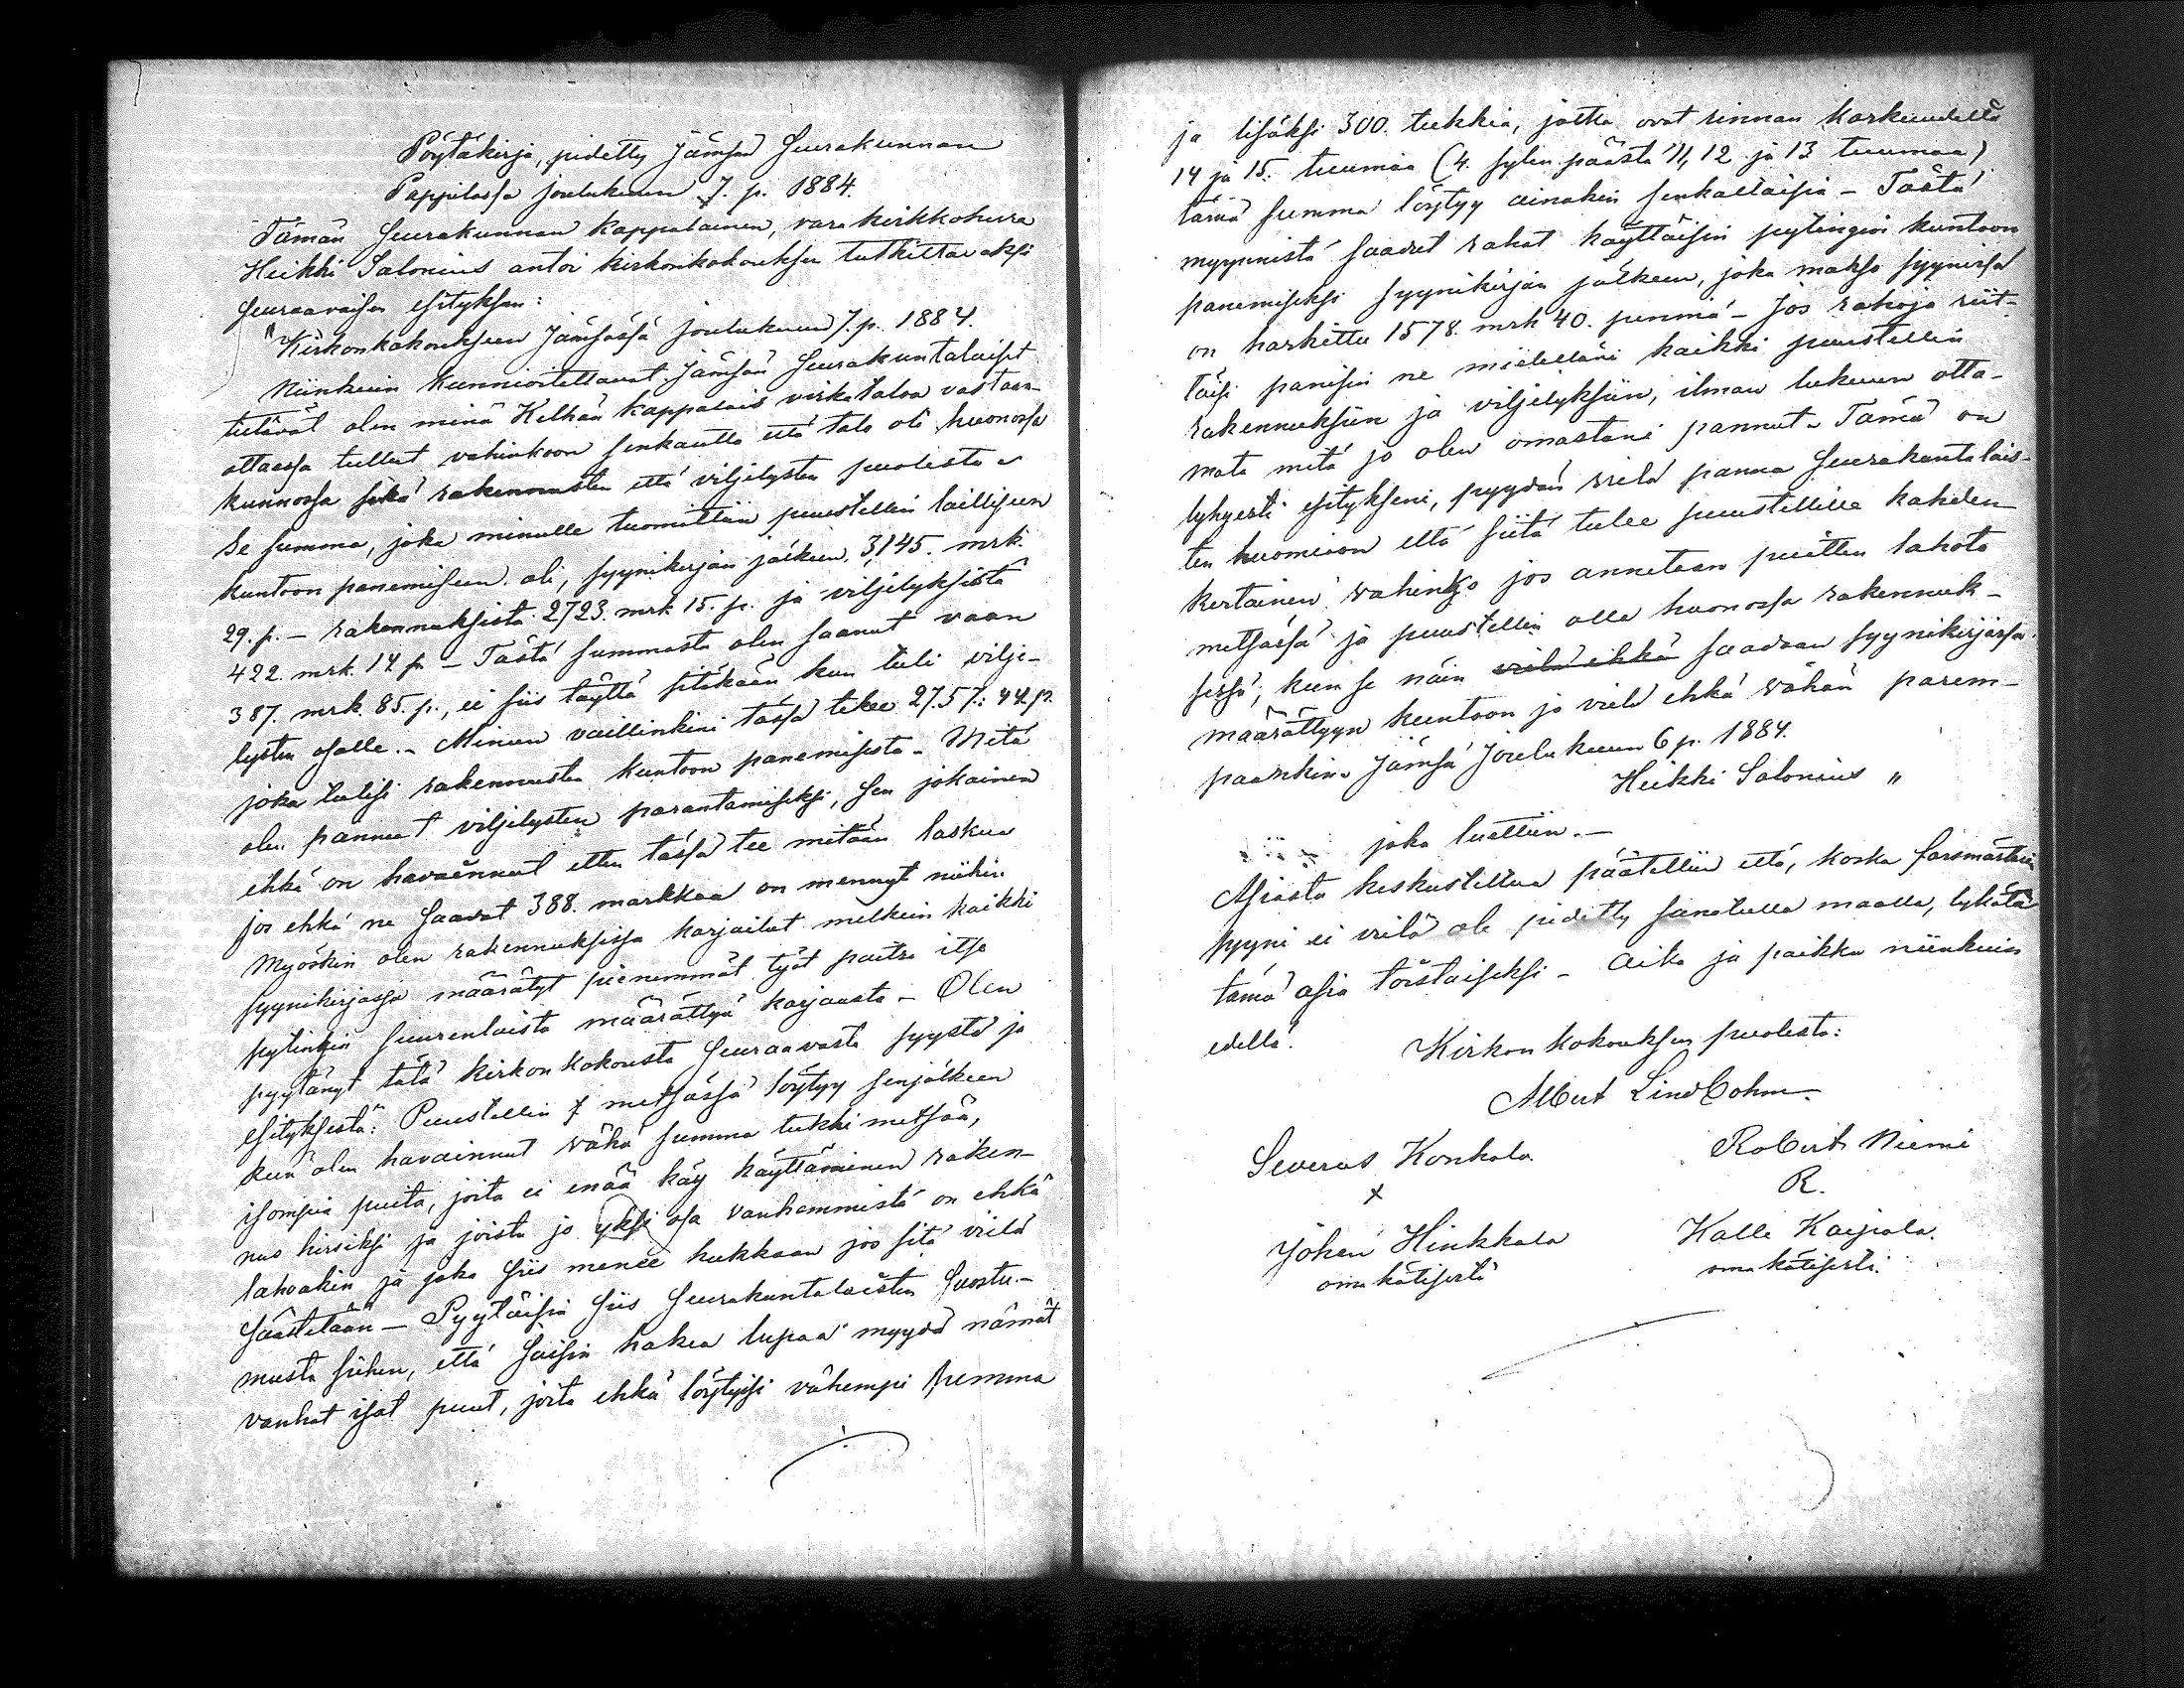 Pöytäkirja, pidetty Jämsän Seurakunnan
Pappilassa joulukuun 7. p. 1884.
Tämän Seurakunnan kappalainen, varakirkkoherra
Heikki Salonius antoi kirkonkokouksen tutkittavaksi
seuraavaisen esityksen:
"Kirkonkokoukseen Jämsässä joulukuun 7. p. 1884.
Niinkuin kunnioitettavat Jämsän Seurakuntalaiset
tietävät olen minä Kelhän kappalais virkataloa vastaan-
ottaessa tullut vahinkoon senkautta että talo oli huonossa
kunnossa sekä rakennusten että viljelysten puolesta.
Se summa, joka minulle tuomittiin puustellin lailliseen
kuntoon panemiseen oli, syynikirjan jälkeen, 3,145. mrk.
29. p. — rakennuksista 2723. mrk 15. p. ja viljelyksistä
422. mrk. 14 p. — Tästä summasta olen saanut vaan
387. mrk. 85. p., ei siis täyttä sitäkään kun tuli vilje-
lysten osalle. — Minun vaillinkini tässä tekee 27.57.: 44 p.
joka tulisi rakennusten kuntoon panemisesta. Mitä
olen pannut viljelysten parantamiseksi, sen jokainen
ehkä on havainnut etten tässä tee mitään laskua
jos ehkä ne saavat 388. markkaa on mennyt niihin
Myöskin olen rakennuksissa korjaillut melkein kaikki
syynikirjassa määrätyt pienemmät työt paitsi itse
pytingin suurenlaista määrättyä korjausta — Olen
pyytänyt tätä kirkonkokousta seuraavasta syystä ja
esityksestä: Puustellin metsässä löytyy senjälkeen
kun olen havainnut vähä summa tukki metsää,
isompia puita, joita ei enää käy käyttäminen raken-
nus hirsiksi ja joista jo yksi osa vanhemmista on ehkä
lahoakin ja joka siis menee hukkaan jos sitä vielä
säästetään — Pyytäisin siis Seurakuntalaisten suostu-
musta siihen, että saisin hakea lupaa myydä nämät
vanhat isot puut, joita ehkä löytyisi vähempi summa
ja lisäksi 300. tukkia, jotka ovat rinnan korkeudella
14 ja 15. tuumaa (4. sylen päästä 11, 12 ja 13 tuumaa)
tämä summa löytyy ainakin senkaltaisia — Tästä
myynnistä saadut rahat käyttäisin pytingin kuntoon
panemiseksi syynikirjan jälkeen, joka maksu syynissä
on harkittu 1578. mrk 40. penniä — Jos rahoja riit-
täisi panisin ne mielelläni kaikki puustellin
rakennuksiin ja viljelyksiin, ilman lukuun otta-
mata mitä jo olen omastani pannut. Tämä on
lyhyesti esitykseni, pyydän vielä panna Seurakuntalais-
ten huomioon että siitä tulee puustellille kahden-
kertainen vahinko jos annetaan puitten lahota
metsässä ja puustellin olla huonossa rakennuk-
sessa, kun se näin vielä ehkä saadaan syynikirjassa
määrättyyn kuntoon ja vielä ehkä vähän parem-
paankin. Jämsä Joulukuun 6 p. 1884.
Heikki Salonius "
joka luettiin. —
Asiasta keskusteltua päätettiin että, koska forsmästarin
syyni ei vielä ole pidetty sanotulla maalla, lykätä
tämä asia toistaiseksi — Aika ja paikka niinkuin
edellä.
Kirkonkokouksen puolesta:
Albert Lindbohm.
Severus Konkola
x
Robert Niemi
R.
Johan Hinkkala
omakätisesti
Kalle Kaipiala.
omakätisesti.